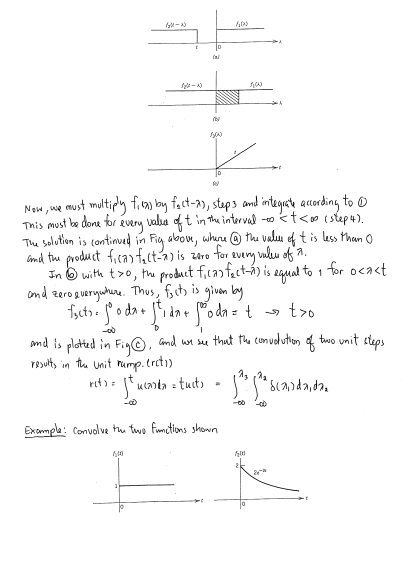 f₂(t−λ) f₁(λ)
t 0 λ
(a)
f₂(t−λ) f₁(λ)
0 t λ
(b)
f₃(λ)
t
0 t
(c)
Now, we must multiply f₁(λ) by f₂(t−λ), step 3 and integrate according to ①
This must be done for every value of t in the interval −∞ < t < ∞ (step 4).
The solution is continued in Fig above, where ⓐ the value of t is less than 0
and the product f₁(λ) f₂(t−λ) is zero for every value of λ.
In ⓑ with t>0, the product f₁(λ) f₂(t−λ) is equal to 1 for 0<λ<t
and zero everywhere. Thus, f₃(t) is given by
f₃(t) = ∫_{−∞}^{0} 0 dλ + ∫_{0}^{t} 1 dλ + ∫_{1}^{∞} 0 dλ = t → t>0
and is plotted in Fig ⓒ, and we see that the convolution of two unit steps
results in the unit ramp. (r(t))
r(t) = ∫_{−∞}^{t} u(λ)dλ = t u(t) = ∫_{−∞}^{λ₃} ∫_{−∞}^{λ₂} δ(λ₁) dλ₁ dλ₂
Example: Convolve the two functions shown
f₁(t) f₂(t)
2 2e⁻²ᵗ
1
0 t 0 t